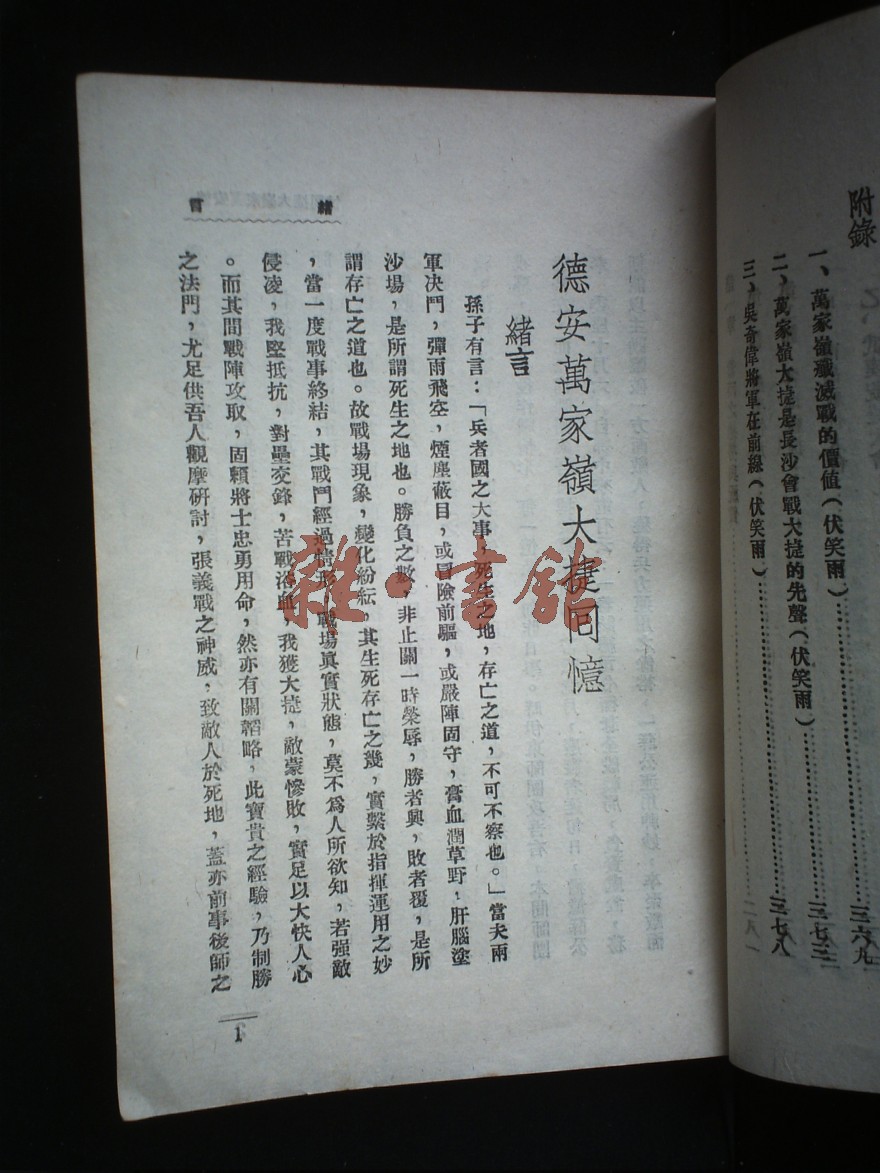 附錄
一、萬家嶺殲滅戰的價值(伏笑雨)…………三六九
二、萬家嶺大捷是長沙會戰大捷的先聲(伏笑雨)…………三七三
三、吳奇偉將軍在前線(伏笑雨)…………三七八
緒言
德安萬家嶺大捷回憶
緒言
孫子有言:「兵者國之大事,死生之地,存亡之道,不可不察也。」當夫兩
軍決鬥,彈雨飛空,煙塵蔽目,或冒險前驅,或嚴陣固守,膏血潤草野,肝腦塗
沙場,是所謂死生之地也。勝負之數,非止關一時榮辱,勝者興,敗者覆,是所
謂存亡之道也。故戰場現象,變化紛紜,其生死存亡之幾,實繫於指揮運用之妙
,當一度戰事終結,其戰鬥經過情形,戰場眞實狀態,莫不爲人所欲知,若強敵
侵凌,我堅抵抗,對壘交鋒,苦戰浴血,我獲大捷,敵蒙慘敗,實足以大快人心
。而其間戰陣攻取,固賴將士忠勇用命,然亦有關韜略,此寶貴之經驗,乃制勝
之法門,尤足供吾人觀摩研討,張義戰之神威,致敵人於死地,蓋亦前事後師之
1
雜·書館